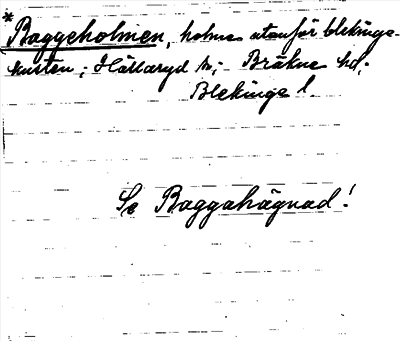 * Baggeholmen, holme utanför blekinge-
kusten; Hällaryd sn; Bräkne hd;
Blekinge l.
Se Baggahägnad!